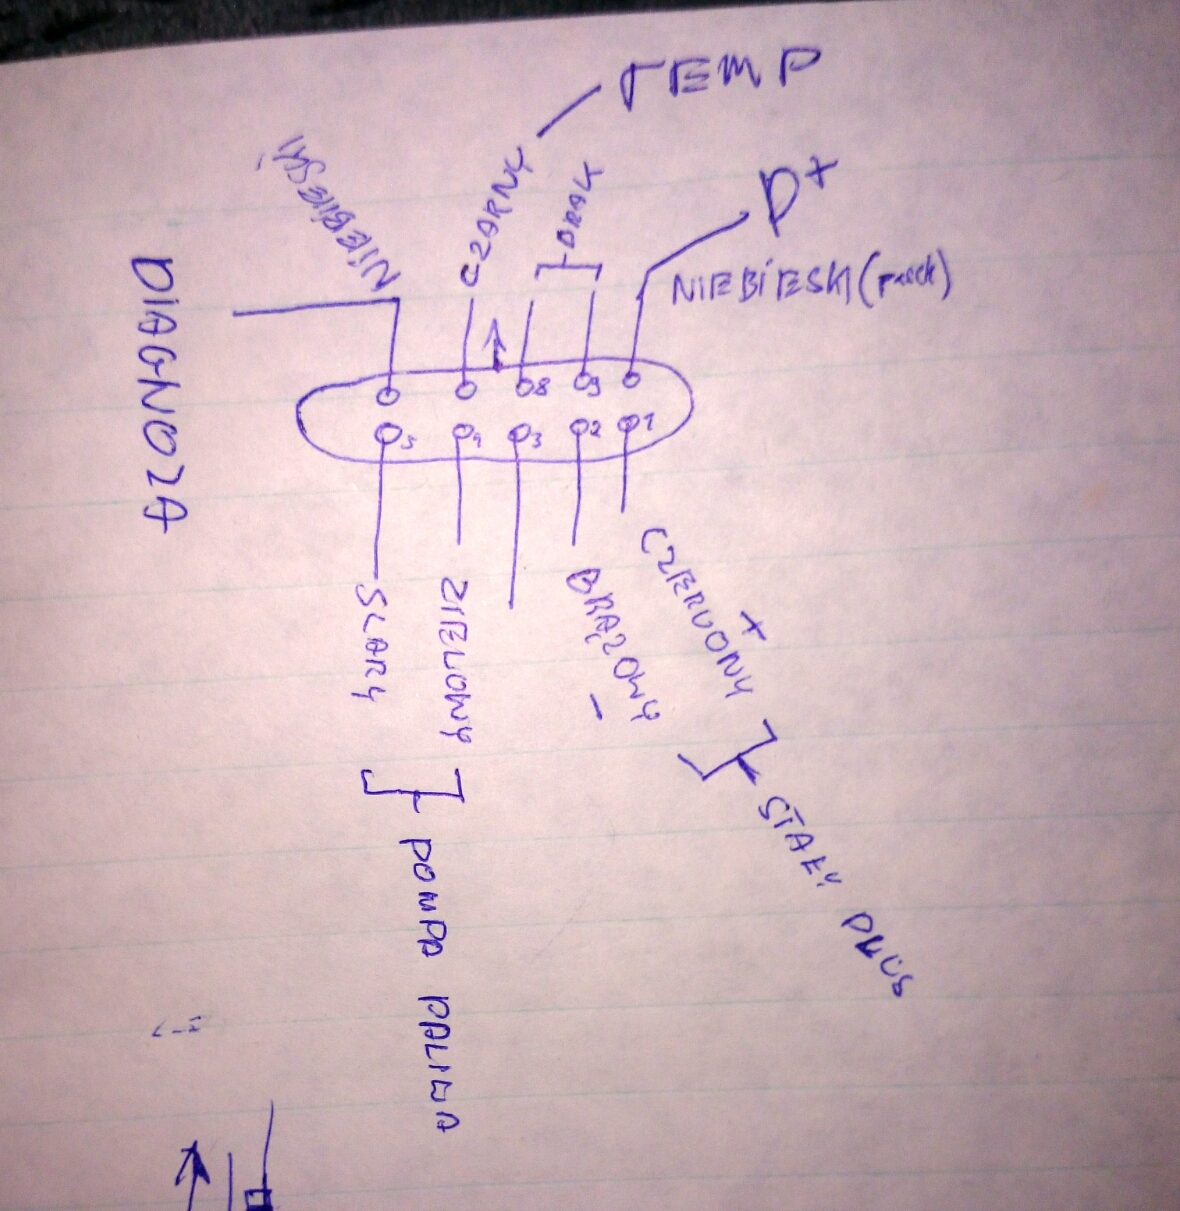 TEMP
D+
NIEBIESKI
CZARNY
BRAK
NIEBIESKI
DIAGNOZA
8
9
5
4
3
2
1
CZERWONY +
BRĄZOWY -
STAŁY PLUS
ZIELONY
SZARY
POMPA PALIWA